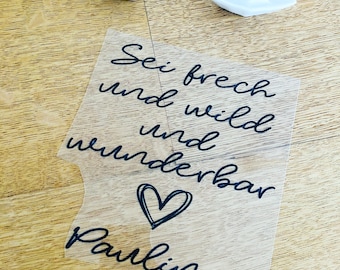 Sei frech
und wild
und
wunderbar